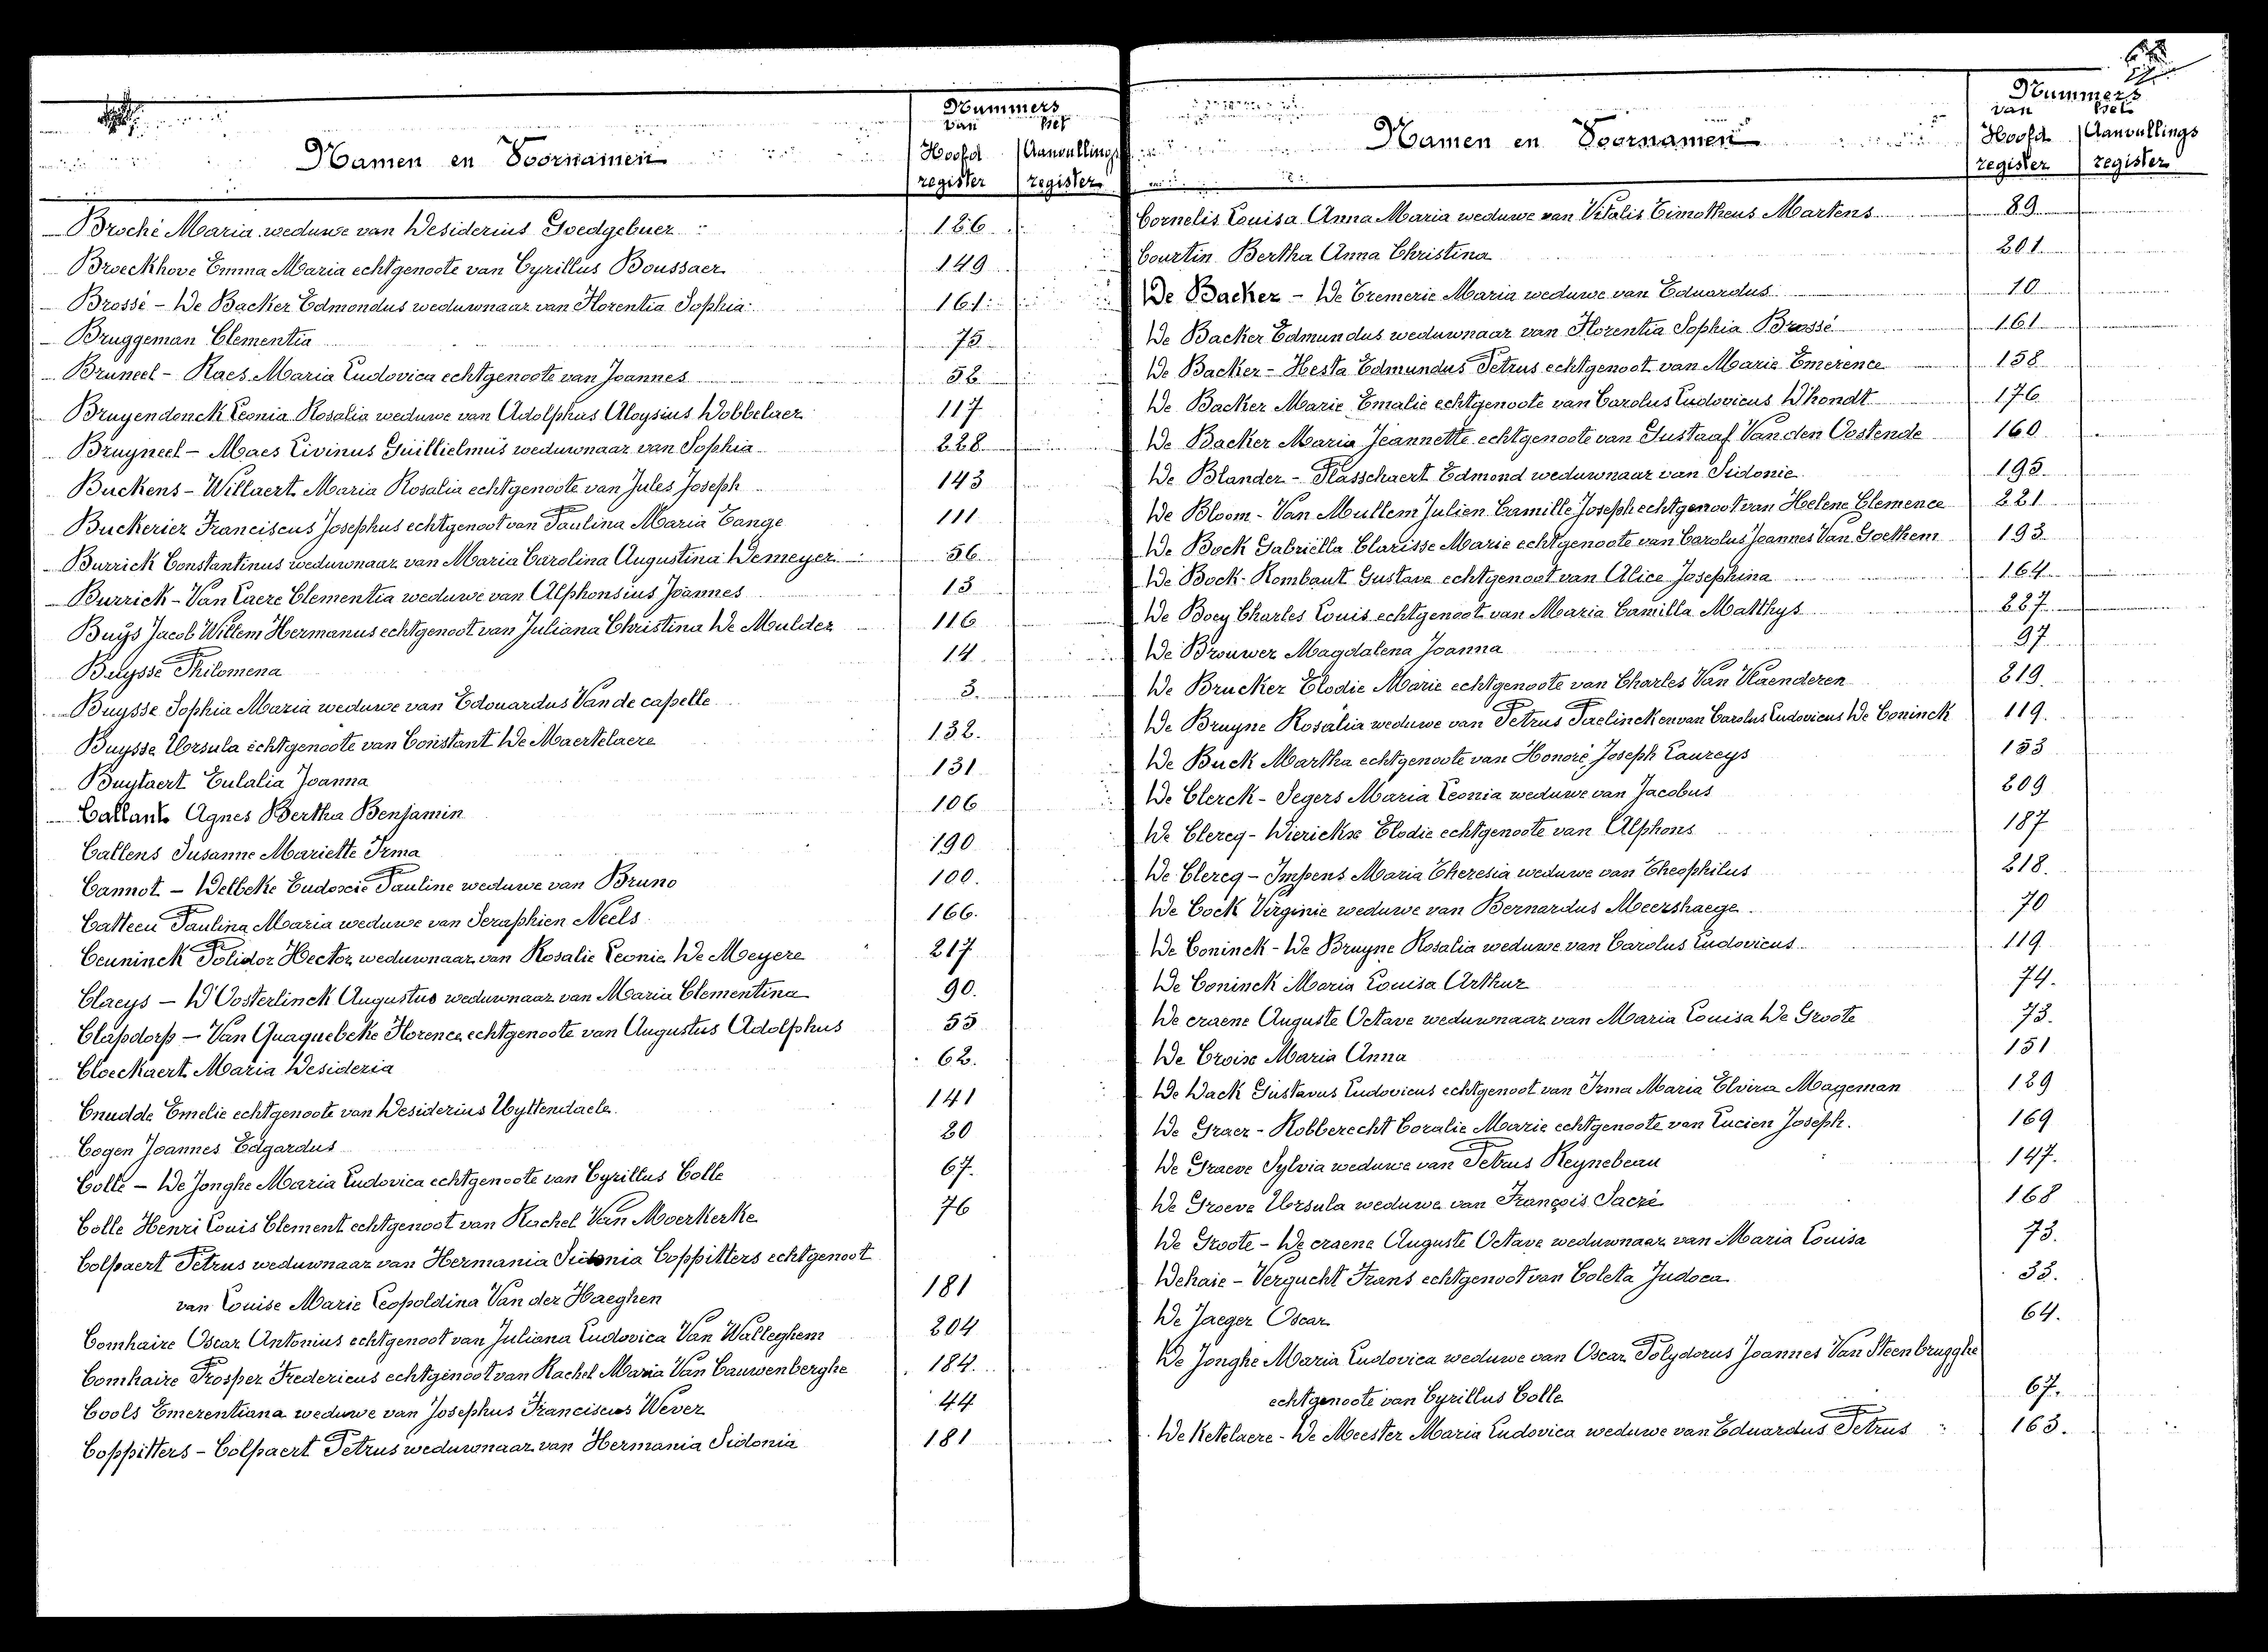 Nummers
van het
Namen en Voornamen
Hoofd Aanvullings
register register
Broché Maria weduwe van Desiderius Goedgebuer 126
Broeckhove Emma Maria echtgenoote van Cyrillus Boussaer 149
Brossé - De Backer Edmondus weduwnaar van Florentia Sophia 161
Bruggeman Clementia 75
Bruneel - Raes Maria Ludovica echtgenoote van Joannes 52
Bruyendonck Leonia Rosalia weduwe van Adolphus Aloysius Dobbelaer 117
Bruyneel - Maes Livinus Guillielmus weduwnaar van Sophia 228
Buckens - Willaert Maria Rosalia echtgenoote van Jules Joseph 143
Buckerier Franciscus Josephus echtgenoot van Paulina Maria Tange 111
Burrick Constantinus weduwnaar van Maria Carolina Augustina Demeyer 56
Burrick - Van Laere Clementia weduwe van Alphonsius Joannes 13
Buys Jacob Willem Hermanus echtgenoot van Juliana Christina De Mulder 116
Buysse Philomena 14
Buysse Sophia Maria weduwe van Edouardus Van de capelle 3.
Buysse Ursula echtgenoote van Constant De Maertelaere 132.
Buytaert Eulalia Joanna 131
Callant Agnes Bertha Benjamin 106
Callens Susanne Mariette Irma 190
Cannot - Delbeke Eudoxie Pauline weduwe van Bruno 100.
Catteeu Paulina Maria weduwe van Seraphien Neels 166.
Ceuninck Polidor Hector weduwnaar van Rosalie Leonie De Meyere 217
Claeys - D'Oosterlinck Augustus weduwnaar van Maria Clementina 90.
Clapdorp - Van Quaquebeke Florence echtgenoote van Augustus Adolphus 55
Cloeckaert Maria Desideria 62.
Cnudde Emelie echtgenoote van Desiderius Uyttendaele 141
Cogen Joannes Edgardus 20
Colle - De Jonghe Maria Ludovica echtgenoote van Cyrillus Colle 67.
Colle Henri Louis Clement echtgenoot van Rachel Van Moerkerke 76
Colpaert Petrus weduwnaar van Hermania Sidonia Coppitters echtgenoot
van Louise Marie Leopoldina Van der Haeghen 181
Comhaire Oscar Antonius echtgenoot van Juliana Ludovica Van Walleghem 204
Comhaire Prosper Fredericus echtgenoot van Rachel Maria Van Cauwenberghe 184.
Cools Emerentiana weduwe van Josephus Franciscus Wever 44
Coppitters - Colpaert Petrus weduwnaar van Hermania Sidonia 181
Nummers
van het
Namen en Voornamen
Hoofd Aanvullings
register register
Cornelis Louisa Anna Maria weduwe van Vitalis Timotheus Martens 89
Courtin Bertha Anna Christina 201
De Backer - De Cremerie Maria weduwe van Eduardus 10
De Backer Edmundus weduwnaar van Florentia Sophia Brossé 161
De Backer - Hesta Edmundus Petrus echtgenoot van Marie Emerence 158
De Backer Marie Emalie echtgenoote van Carolus Ludovicus D'hondt 176
De Backer Maria Jeannette echtgenoote van Gustaaf Van den Oostende 160
De Blander - Plasschaert Edmond weduwnaar van Sidonie 195.
De Bloom - Van Mullem Julien Camille Joseph echtgenoot van Helene Clemence 221
De Bock Gabriëlla Clarisse Marie echtgenoote van Carolus Joannes Van Goethem 193
De Bock - Rombaut Gustave echtgenoot van Alice Josephina 164
De Boey Charles Louis echtgenoot van Maria Camilla Matthys 227
De Brouwer Magdalena Joanna 97
De Brucker Elodie Marie echtgenoote van Charles Van Vlaenderen 219.
De Bruyne Rosalia weduwe van Petrus Praelinck en van Carolus Ludovicus De Coninck 119.
De Buck Martha echtgenoote van Honoré Joseph Laureys 153
De Clerck - Segers Maria Leonia weduwe van Jacobus 209
De Clercq - Dierickx Elodie echtgenoote van Alphons 187
De Clercq - Impens Maria Theresia weduwe van Theophilus 218.
De Cock Virginie weduwe van Bernardus Meershaege 70
De Coninck - De Bruyne Rosalia weduwe van Carolus Ludovicus 119
De Coninck Maria Louisa Arthur 74.
De craene Auguste Octave weduwnaar van Maria Louisa De Groote 73.
De Croix Maria Anna 151
De Dack Gustavus Ludovicus echtgenoot van Irma Maria Elvira Mageman 129
De Graer - Robberecht Coralie Marie echtgenoote van Lucien Joseph. 169
De Graeve Sylvia weduwe van Petrus Reynebeau 147.
De Groeve Ursula weduwe van François Sacré 168
De Groote - De craene Auguste Octave weduwnaar van Maria Louisa 73.
Dehaie - Vergucht Frans echtgenoot van Coleta Judoca 33.
De Jaeger Oscar 64.
De Jonghe Maria Ludovica weduwe van Oscar Polydorus Joannes Van Steenbrugghe
echtgenoote van Cyrillus Colle 67.
De Ketelaere - De Meester Maria Ludovica weduwe van Eduardus Petrus 163.